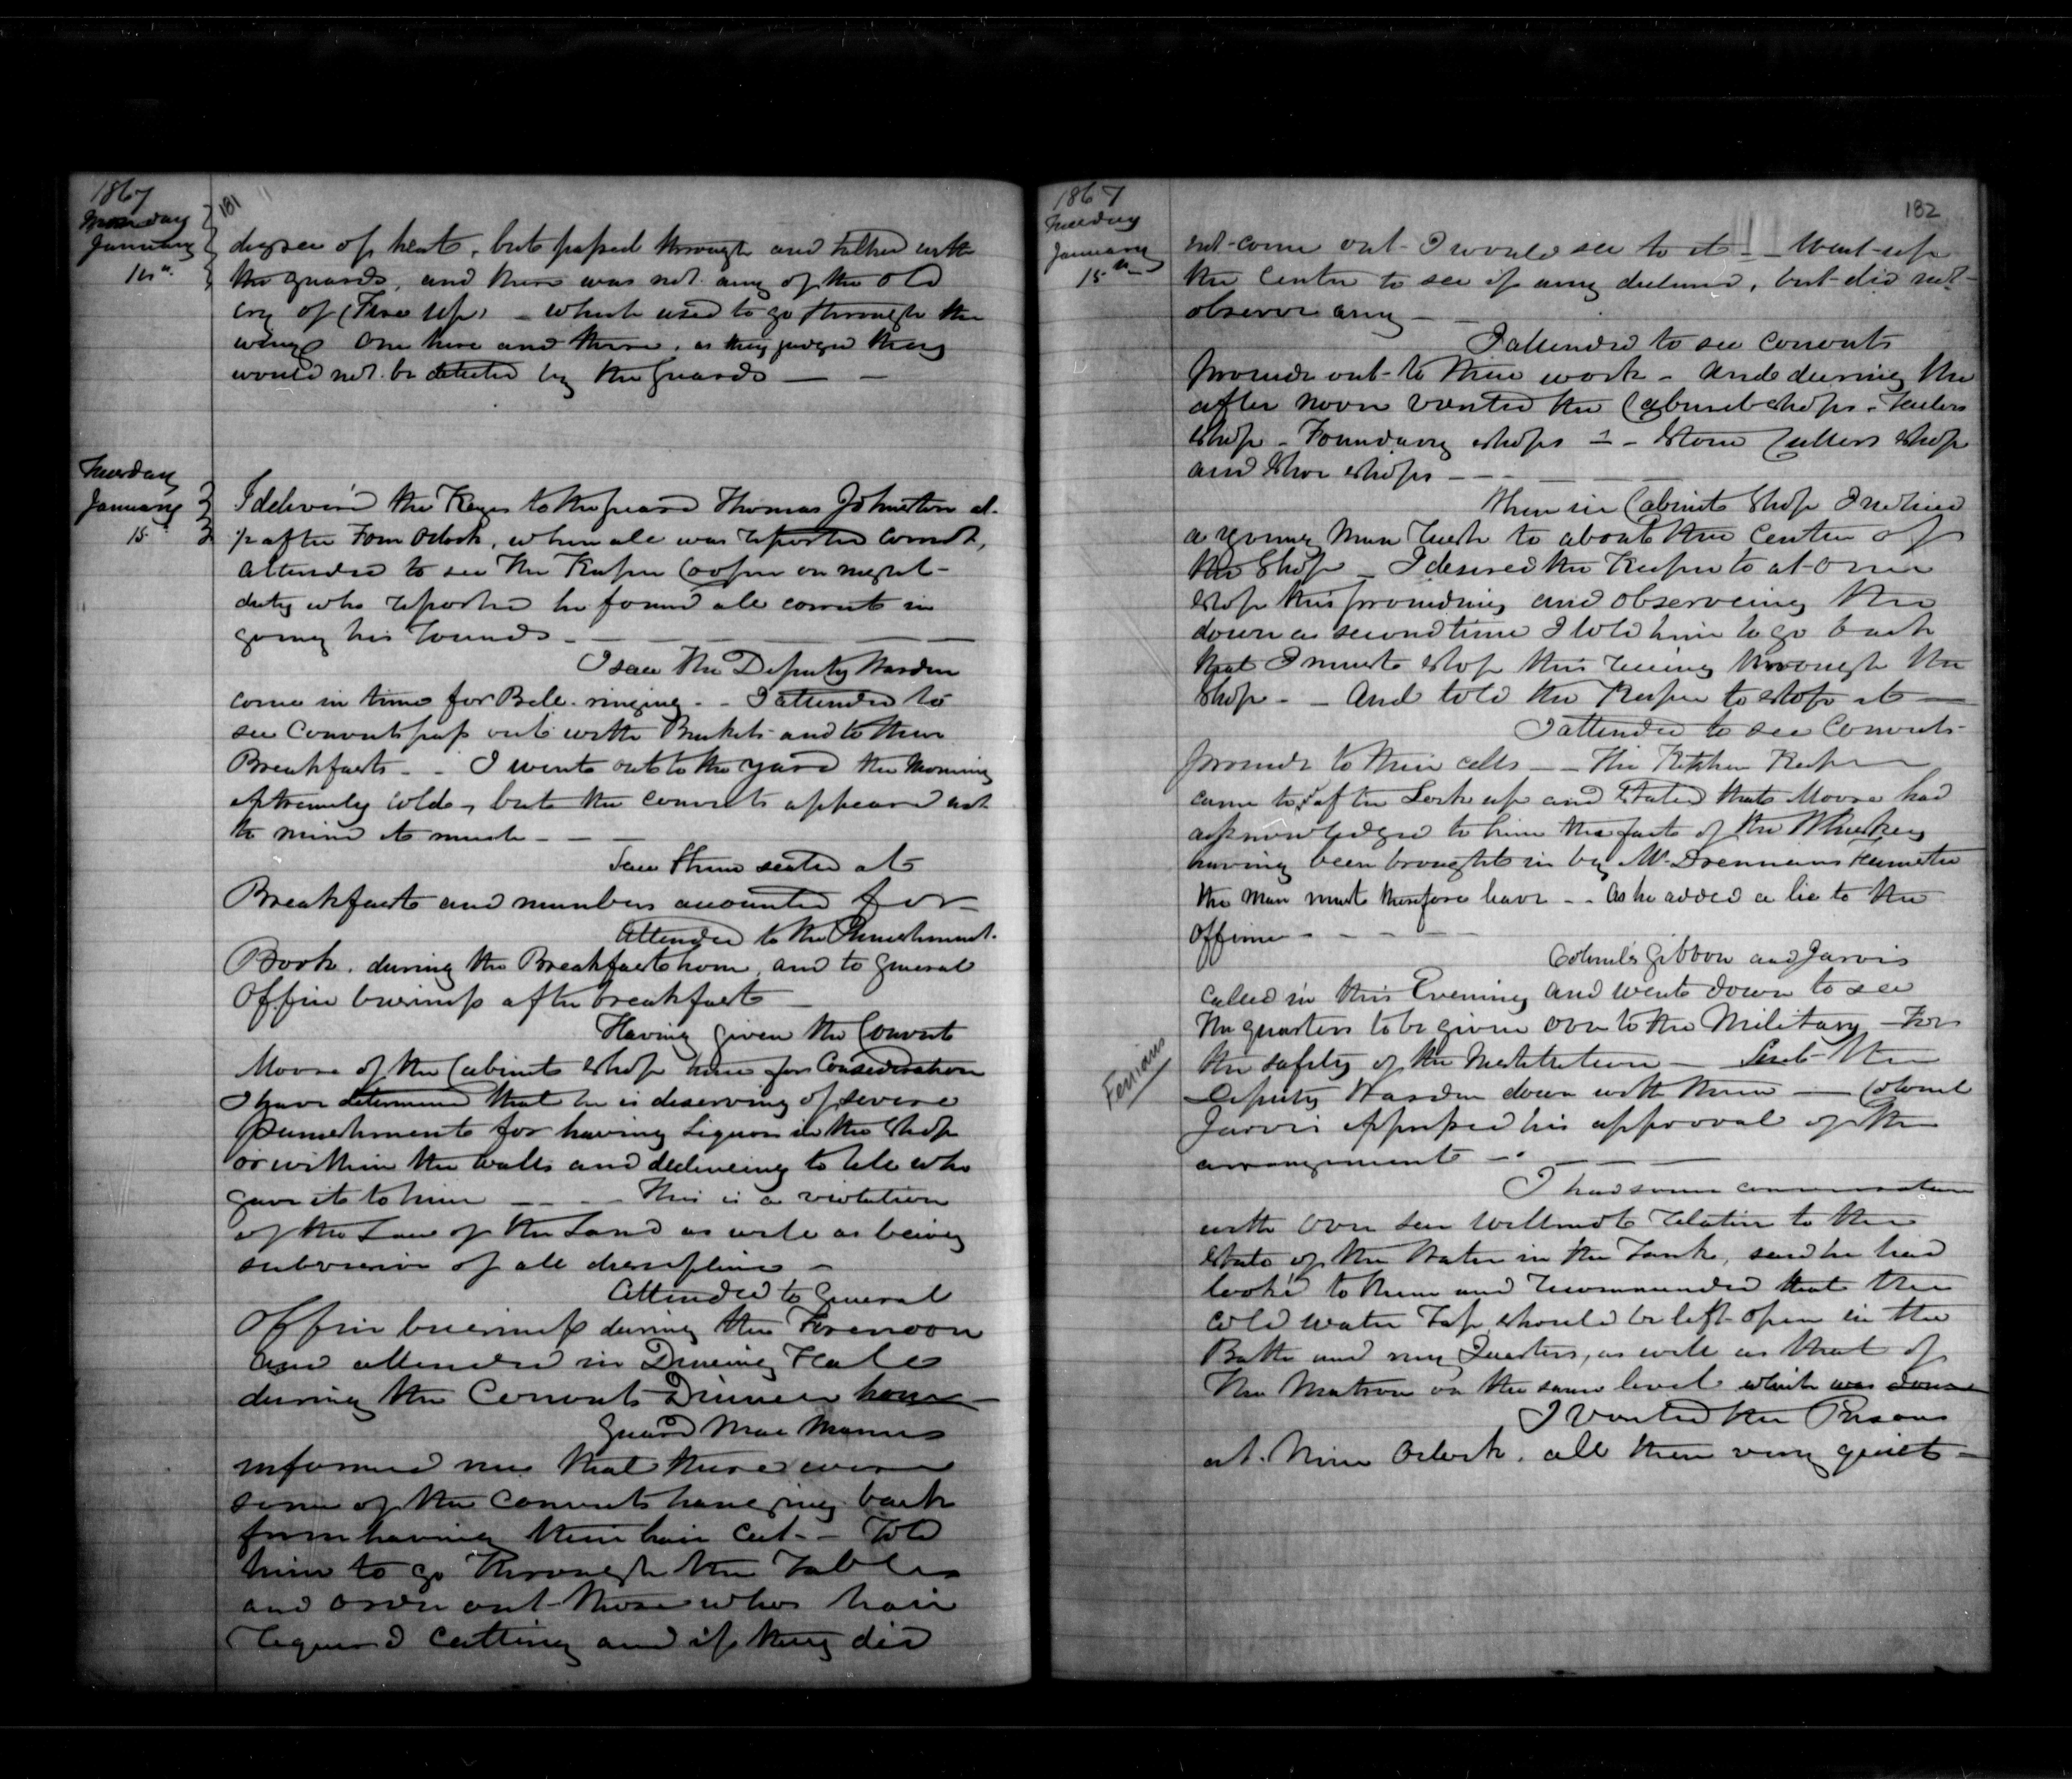 1867
181
Monday
January
14th
degree of heat, but passed through and talked with
the guards, and there was not any of the old
cry of (Fire up) - which used to go through the
wings one here and there, as they judged they
would not be detected by the Guards — —
Tuesday
January
15
I deliver'd the Keys to the guard Thomas Johnston at
½ after Four Oclock, when all was reported correct,
attended to see the Keeper Cooper on night-
duty who reported he found all correct in
going his rounds - — — — —
I saw the Deputy Warden
come in time for Bell ringing - - I attended to
see Convicts pass out with Buckets and to their
Breakfasts - - I went out to the yard the morning
extremely cold, but the convicts appeared not
to mind it much - — —
Saw them seated at
Breakfast and numbers accounted for -
Attended to the Punishment
Book, during the Breakfast hour, and to general
Office business after breakfast —
Having given the Convict
Moore of the Cabinet Shop time for Consideration
I have determined that he is deserving of severe
punishment for having Liquor in the Shop
or within the walls and declineing to tell who
gave it to him — - — - This is a violation
of the Law of the Land as well as being
subversive of all discipline -
Attended to General
Office business during the Forenoon
and attended in Dineing Hall
during the Convicts Dinner hour —
Guard Mac Manus
informed me that there were
some of the convicts hanging back
from having their hair cut - - Told
him to go through the Tables
and order out those whos hair
required cutting and if they did
1867
182
Tuesday
January
15th
not come out I would see to it - - Went up
the Center to see if any declined, but did not
observe any — -
I attended to see convicts
proceed out to their work - and during the
after noon visited the Cabinet shops, Tailors
Shop - Foundary shops - - Stone Cutters shop
and Shoe shops — - - — —
When in Cabinet Shop I noticed
a young man rush to about the center of
the Shop - I desired the Keeper to at once
stop this proceeding and observeing the
down a second time I told him to go back
that I must stop this runing through the
Shop - - And told the Keeper to stop it —
I attended to see Convicts
proceede to their cells - - The Kitchen Keeper
came to after Lock up and Stated that Moore had
acknowledged to him the fact of the Whiskey
having been brought in by Mr Drennans teamster
the man must therefore leave - - As he added a lie to the
offence - - - - -
Colonels Gibbon and Jarvis
called in this Evening and went down to see
the quarters to be given over to the Military - For
the safety of the Institution — Sent the
Deputy Warden down with them — Colonel
Jarvis expressed his approval of the
arrangements - - — —
Fenians
I had some conversation
with over seer Willmot relative to the
state of the Water in the Tank, said he had
look'd to them and recommended that the
cold water Tap should be left open in the
Bath and my Quarters, as well as that of
the Matron on the same level which was done
I Visited the Prison
at Nine Oclock, all then very quiet -